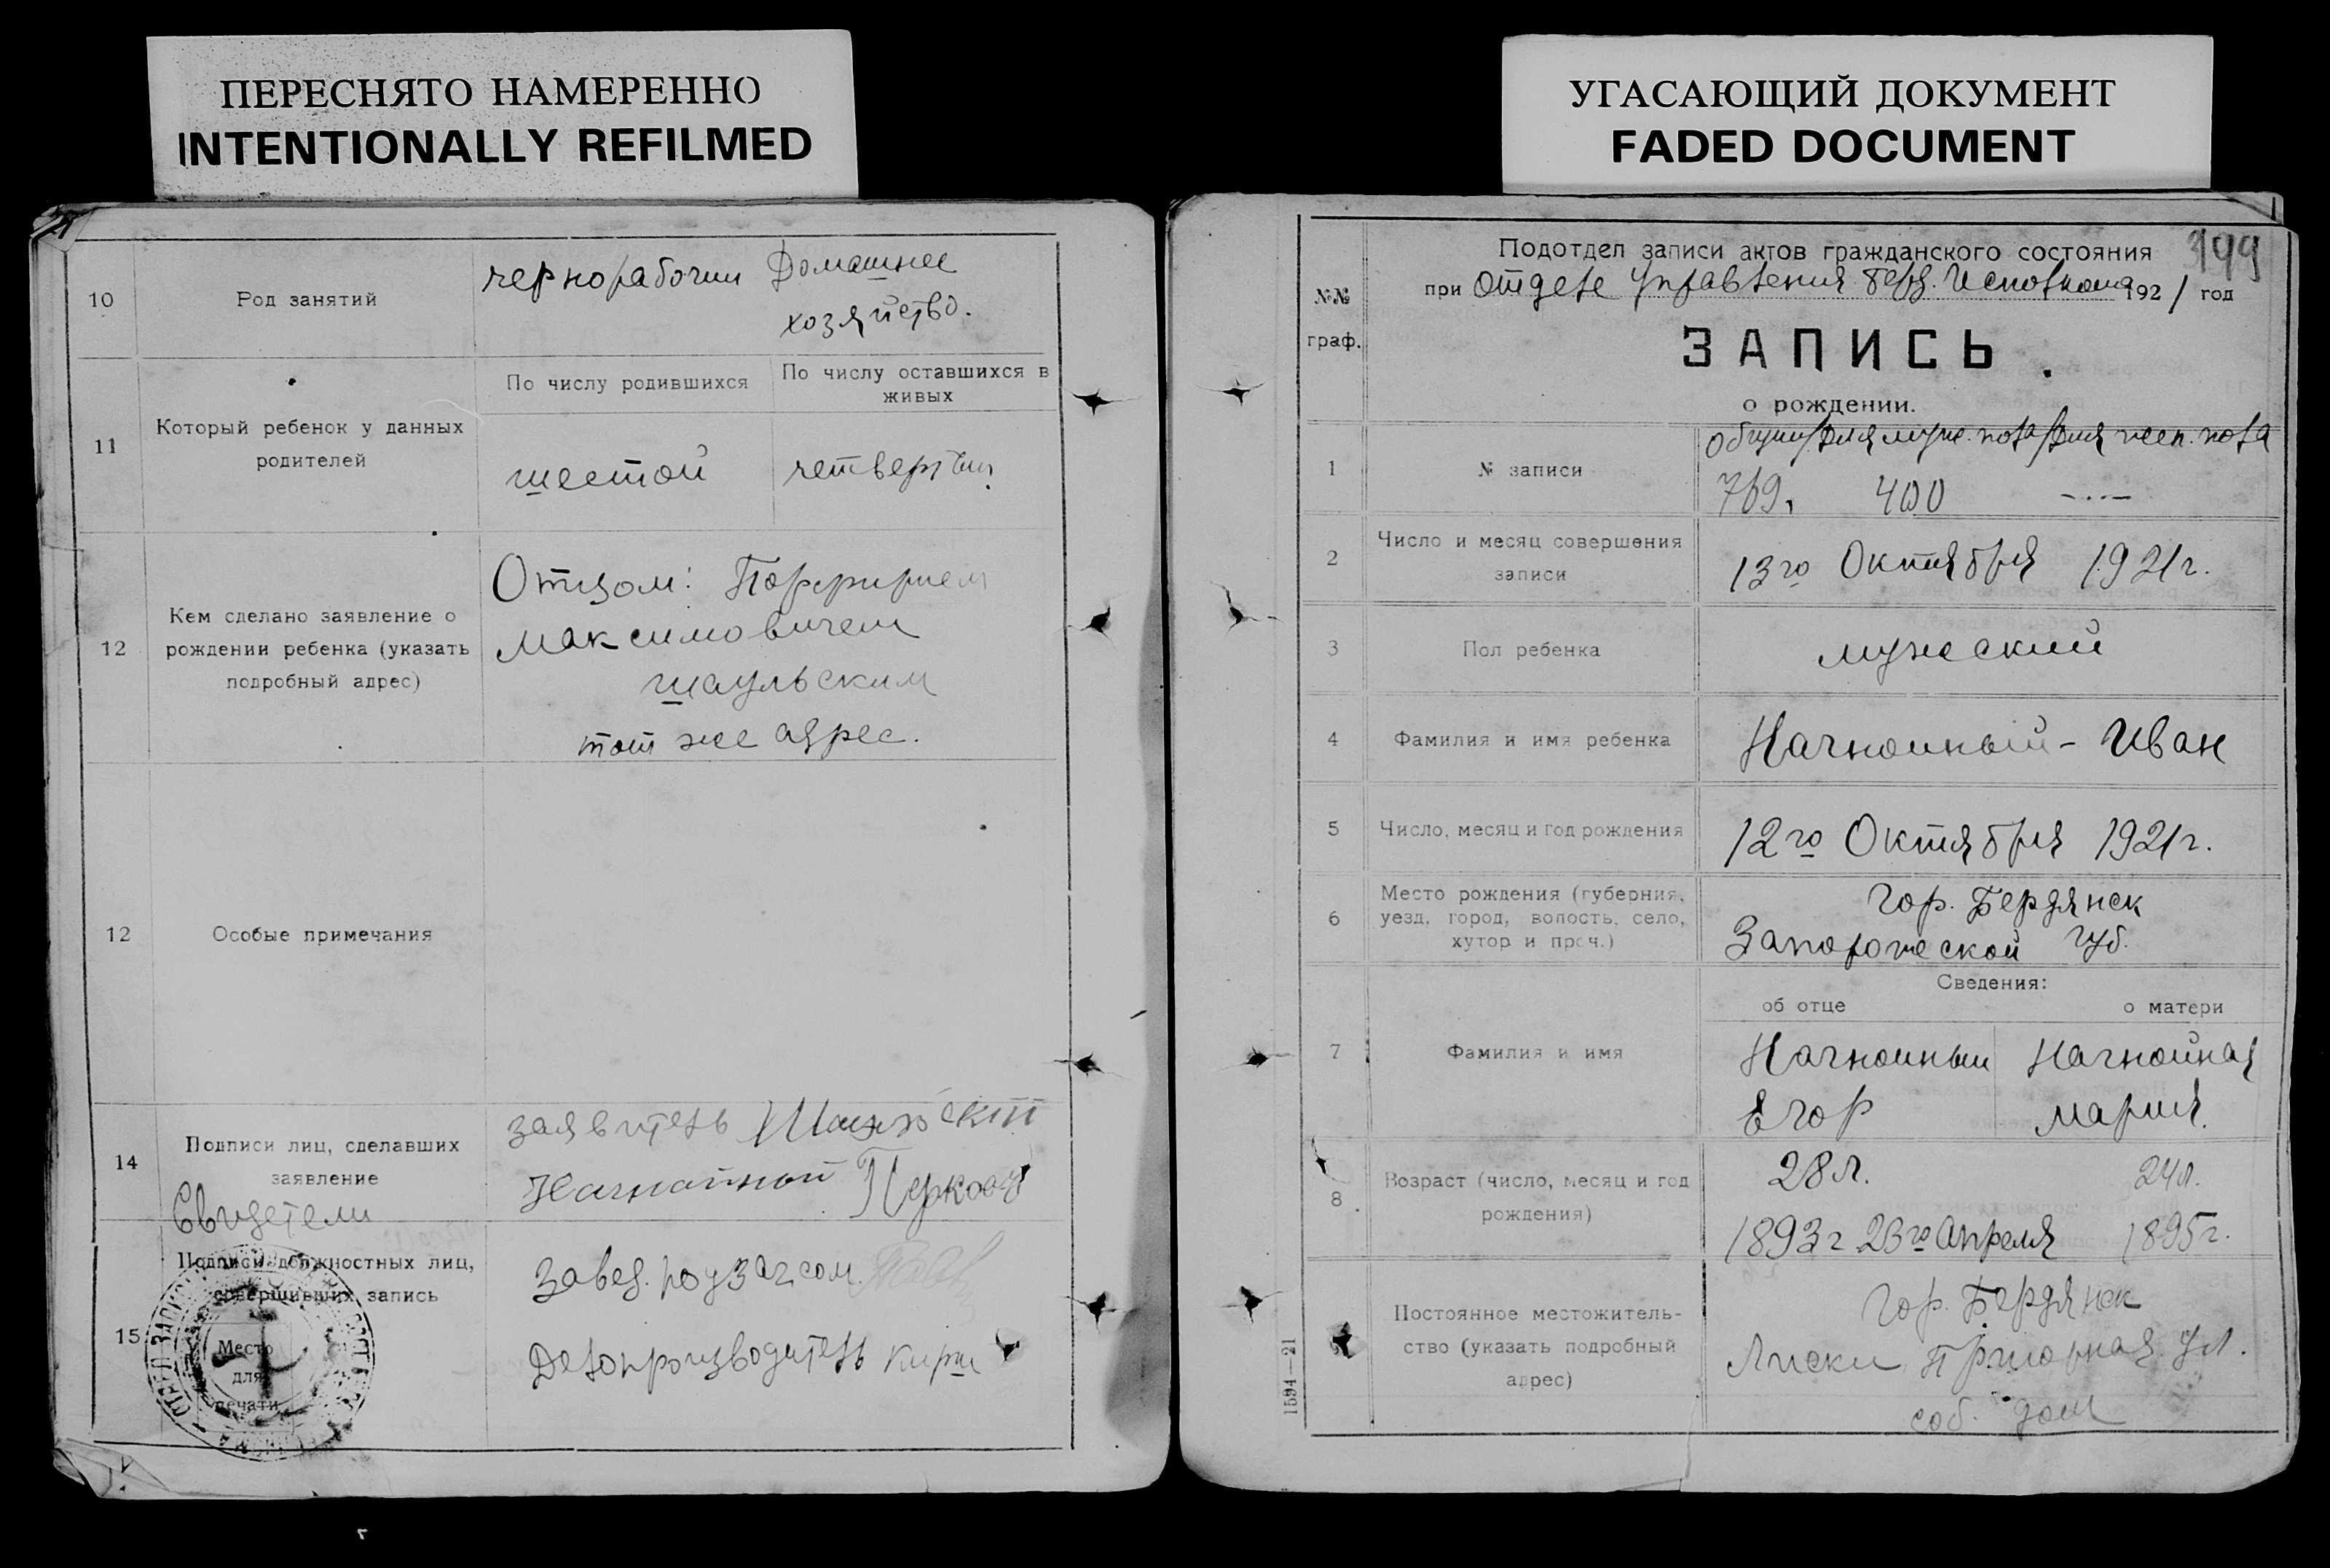 ПЕРЕСНЯТО НАМЕРЕННО
INTENTIONALLY REFILMED
10
Род занятий
чернорабочий
Домашнее
хозяйство.
11
Который ребенок у данных
родителей
По числу родившихся
По числу оставшихся в
живых
шестой
четвертый
12
Кем сделано заявление о
рождении ребенка (указать
подробный адрес)
Отцом: Порфирием
Максимовичем
Шаульским
тот же адрес.
12
Особые примечания
14
Подписи лиц, сделавших
заявление
Свидетели
заявитель
Начнойный
15
Подписи должностных лиц,
совершивших запись
Место
для
печати
Завед. подзагсом
Делопроизводитель
УГАСАЮЩИЙ ДОКУМЕНТ
FADED DOCUMENT
199
№№
граф.
Подотдел записи актов гражданского состояния
при Отделе Управления Берд. Исполкома 1921 год
ЗАПИСЬ
о рождении.
1
№ записи
общий/для муже. пола/для жен. пола
769, 400 -..-
2
Число и месяц совершения
записи
13го Октября 1921г.
3
Пол ребенка
мужеский
4
Фамилия и имя ребенка
Начнойный - Иван
5
Число, месяц и год рождения
12го Октября 1921г.
6
Место рождения (губерния,
уезд, город, волость, село,
хутор и проч.)
гор. Бердянск
Запорожеской губ.
Сведения:
об отце
о матери
7
Фамилия и имя
Начнойный
Егор
Начнойная
Мария.
8
Возраст (число, месяц и год
рождения)
28 л.
24 л.
1893г 23го Апреля
1895г.
Постоянное местожитель-
ство (указать подробный
адрес)
гор. Бердянск
Лиски Приморная ул.
соб. дом
1594—21